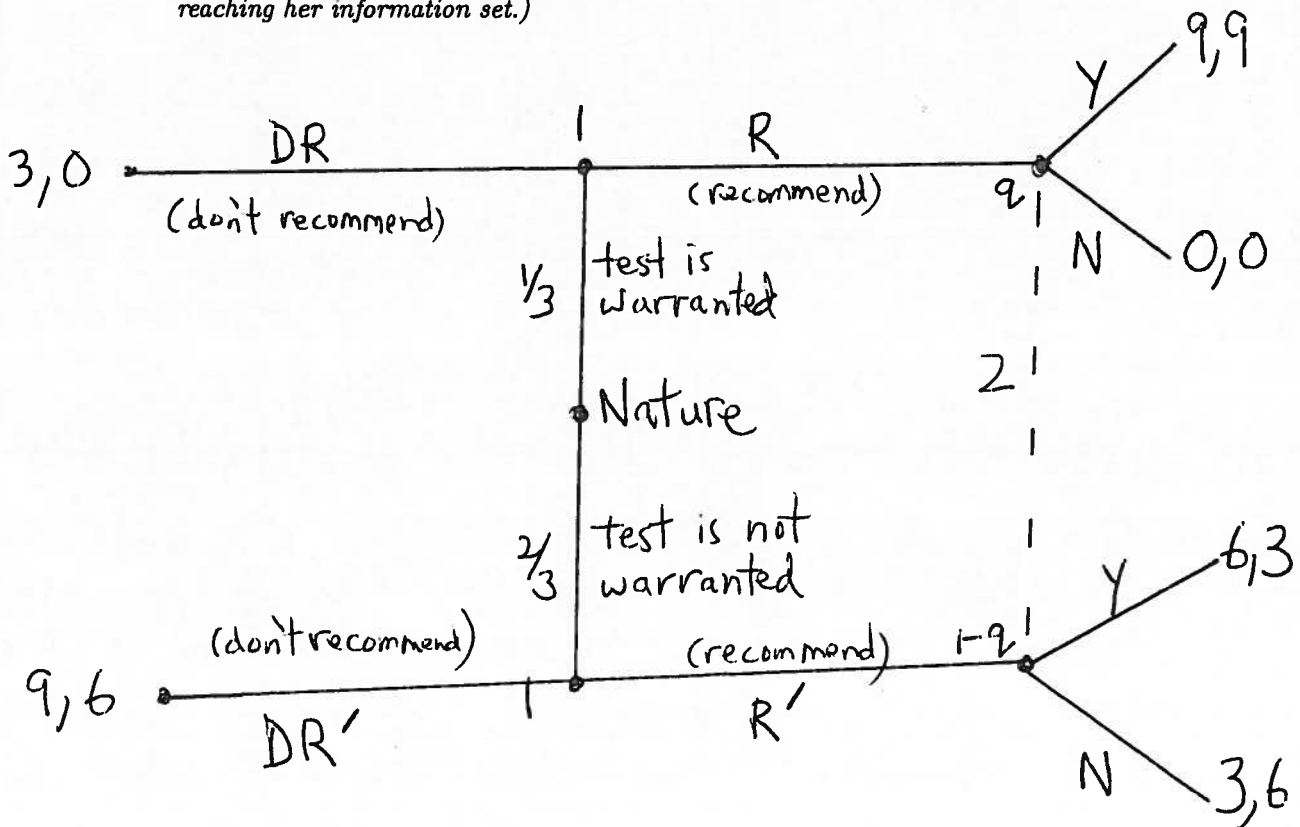 reaching her information set.)
9,9
Y
1
DR
R
3,0
(don't recommend)
(recommend)
q
N
0,0
1/3
test is
warranted
2
Nature
2/3
test is not
warranted
6,3
Y
(don't recommend)
(recommend)
1-q
9,6
1
DR′
R′
N
3,6